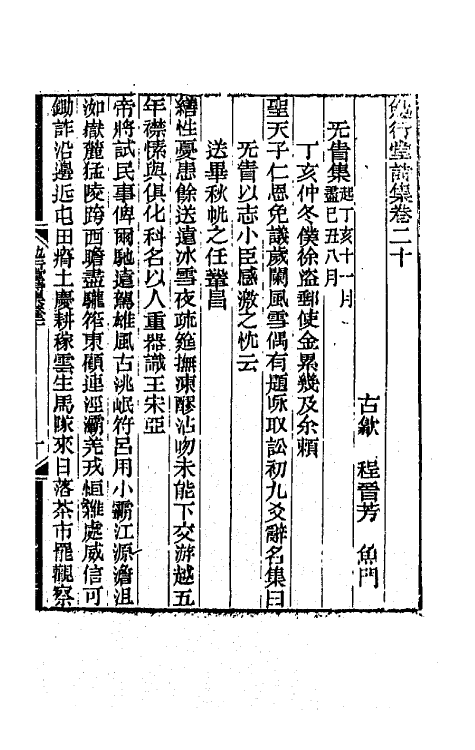 勉行堂詩集卷二十
古歙　程晉芳　魚門
旡眚集起丁亥十一月盡己丑八月
丁亥仲冬僕徐盜郵使金累幾及余賴
聖天子仁恩免議歲闌風雪偶有題詠取訟初九爻辭名集曰
旡眚以志小臣感激之忱云
送畢秋帆之任鞏昌
繕性憂患餘送遠冰雪夜疏筵撫凍醪沾吻未能下交游越五
年襟愫與俱化科名以人重器識王宋亞
帝將試民事俾爾馳遠駕雄風古洮岷符呂用小霸江源澹沮
洳嶽麓猛陵跨西瞻盡隴筰東顧連涇灞羌戎恒雜處威信可
鋤詐沿邊近屯田瘠土慶耕稼雲生馬隊來日落茶市罷觀察